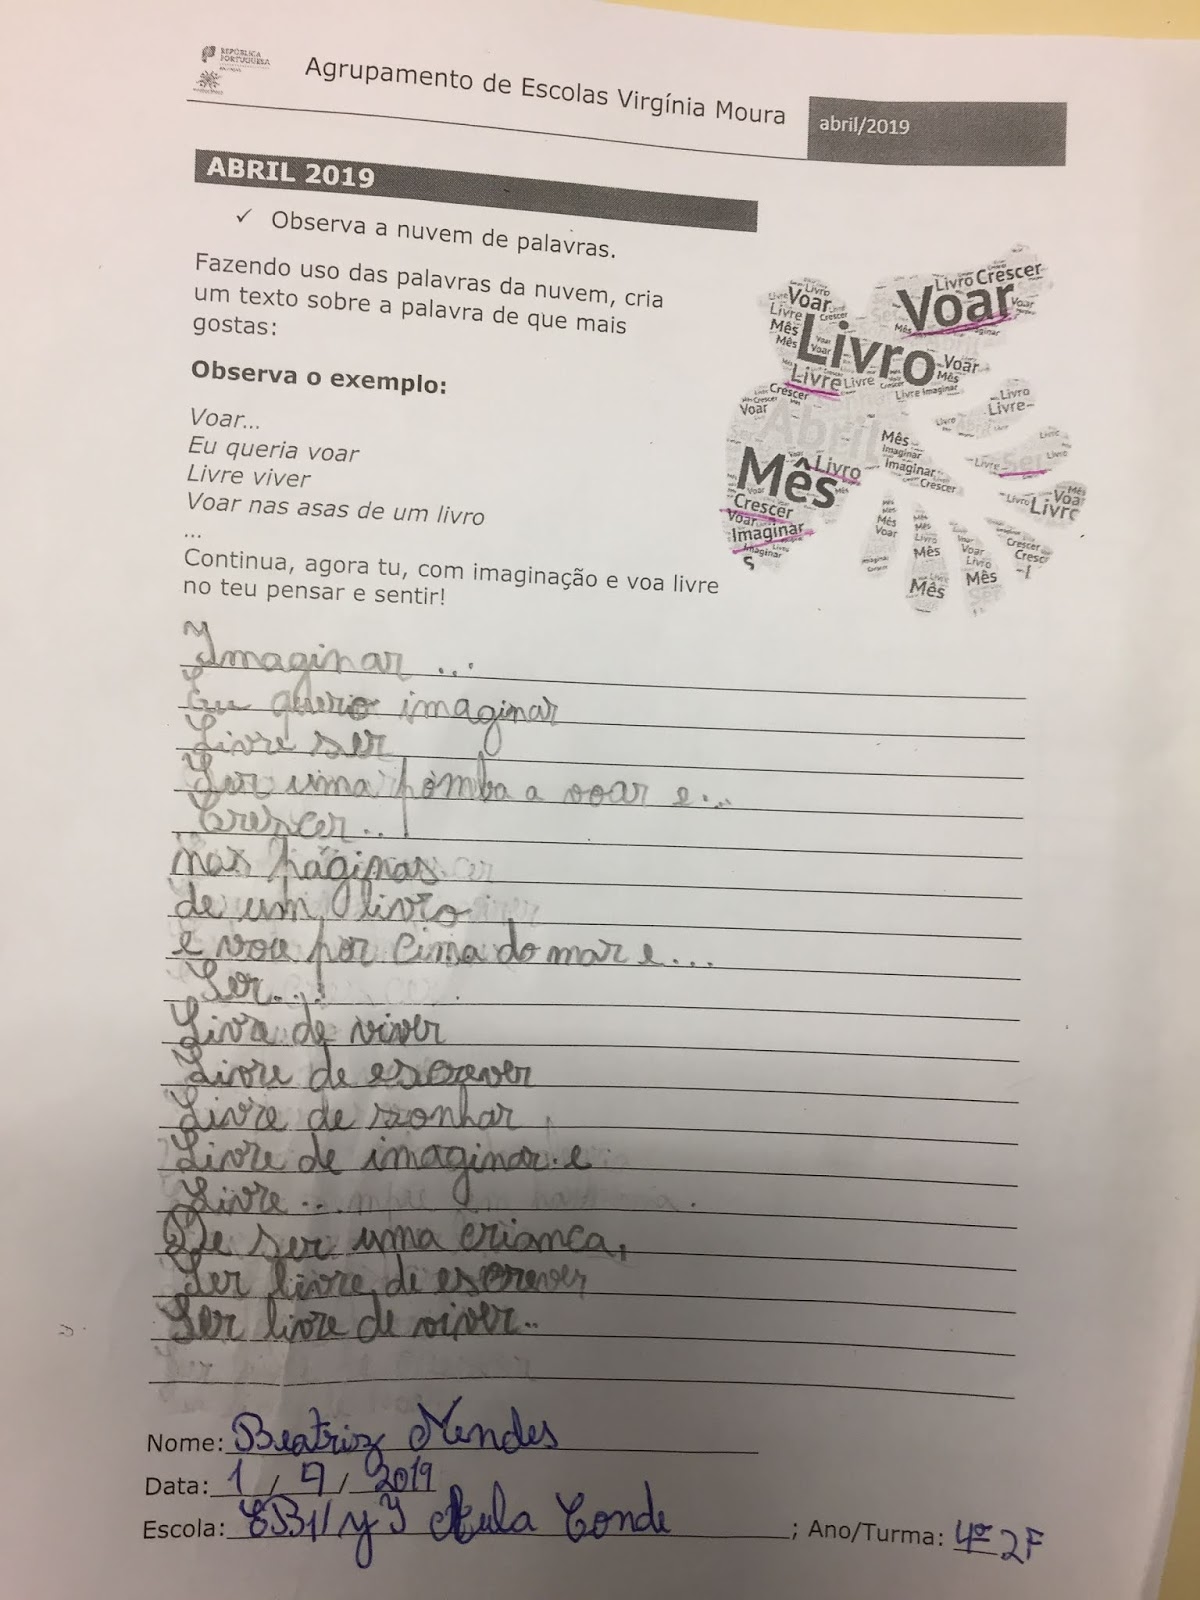 REPÚBLICA
PORTUGUESA
Agrupamento de Escolas Virgínia Moura
abril/2019
ABRIL 2019
✓ Observa a nuvem de palavras.
Fazendo uso das palavras da nuvem, cria
um texto sobre a palavra de que mais
gostas:
Observa o exemplo:
Voar...
Eu queria voar
Livre viver
Voar nas asas de um livro
...
Continua, agora tu, com imaginação e voa livre
no teu pensar e sentir!
Livro Crescer
Voar
Livro
Voar
Livre
Mês
Livro
Voar
Mês
Livre Livre
Livre Imaginar
Crescer
Voar
Abril
Livro
Livre
Mês
Imaginar
Imaginar
Crescer
Livre
Ser
Livro
Mês
Crescer
Voar
Imaginar
Imaginar
Livro
Mês
Voar
Mês
Livro
Mês
Mês
Voar
Livro
Mês
Crescer
Imaginar ...
Eu querio imaginar
Livre ser
Ser uma pomba a voar e...
Crescer...
nas páginas
de um livro
e vou por cima do mar e...
Ser...
Livre de viver
Livre de escrever
Livre de sonhar
Livre de imaginar e
Livre ...
De ser uma criança,
Ser livre de escrever
Ser livre de viver..
Nome: Beatriz Mendes
Data: 1 / / 2019
Escola: EB1/ Conde ; Ano/Turma: 4º 2F